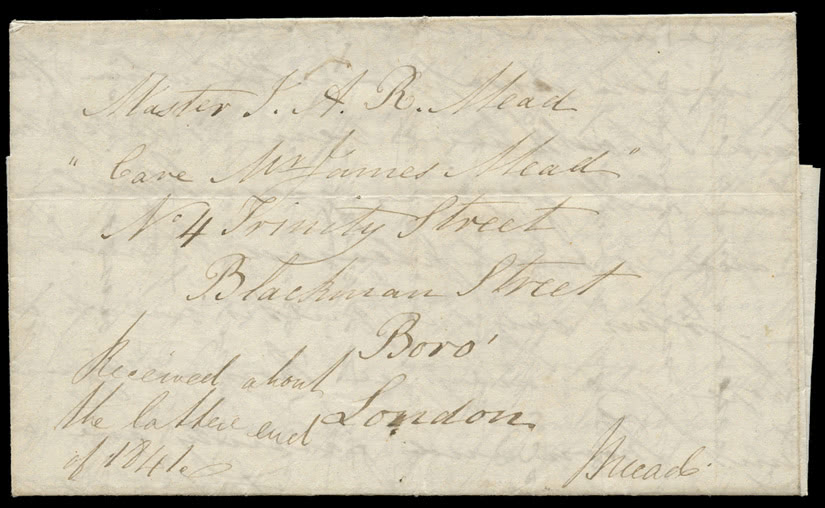 Master J. A. R. Mead
"Care Mr James Mead"
No 4 Trinity Street
Blackman Street
Boro'
London.
Received about
the latter end
of 1841.
JMead.